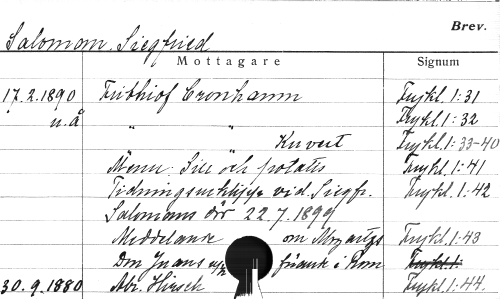 Brev.
Saloman, Siegfried
Mottagare Signum
17.2.1890 Frithiof Cronhamn Frykl. 1:31
u.å " " Frykl. 1:32
Kuvert Frykl. 1:33-40
Menu: Sill och potatis Frykl. 1:41
Tidningsurklipp vid Siegfr. Frykl. 1:42
Salomans död 22.7.1899
Meddelande om Mozarts Frykl. 1:43
Don Juans framf. i Rom Frykl. 1.
30.9.1880 Abr. Hirsch Frykl. 1:44.